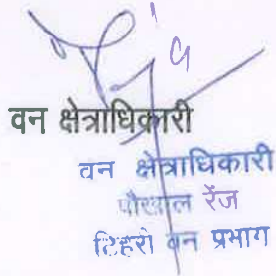 वन क्षेत्राधिकारी
वन क्षेत्राधिकारी
पौखाल रेंज
टिहरी वन प्रभाग